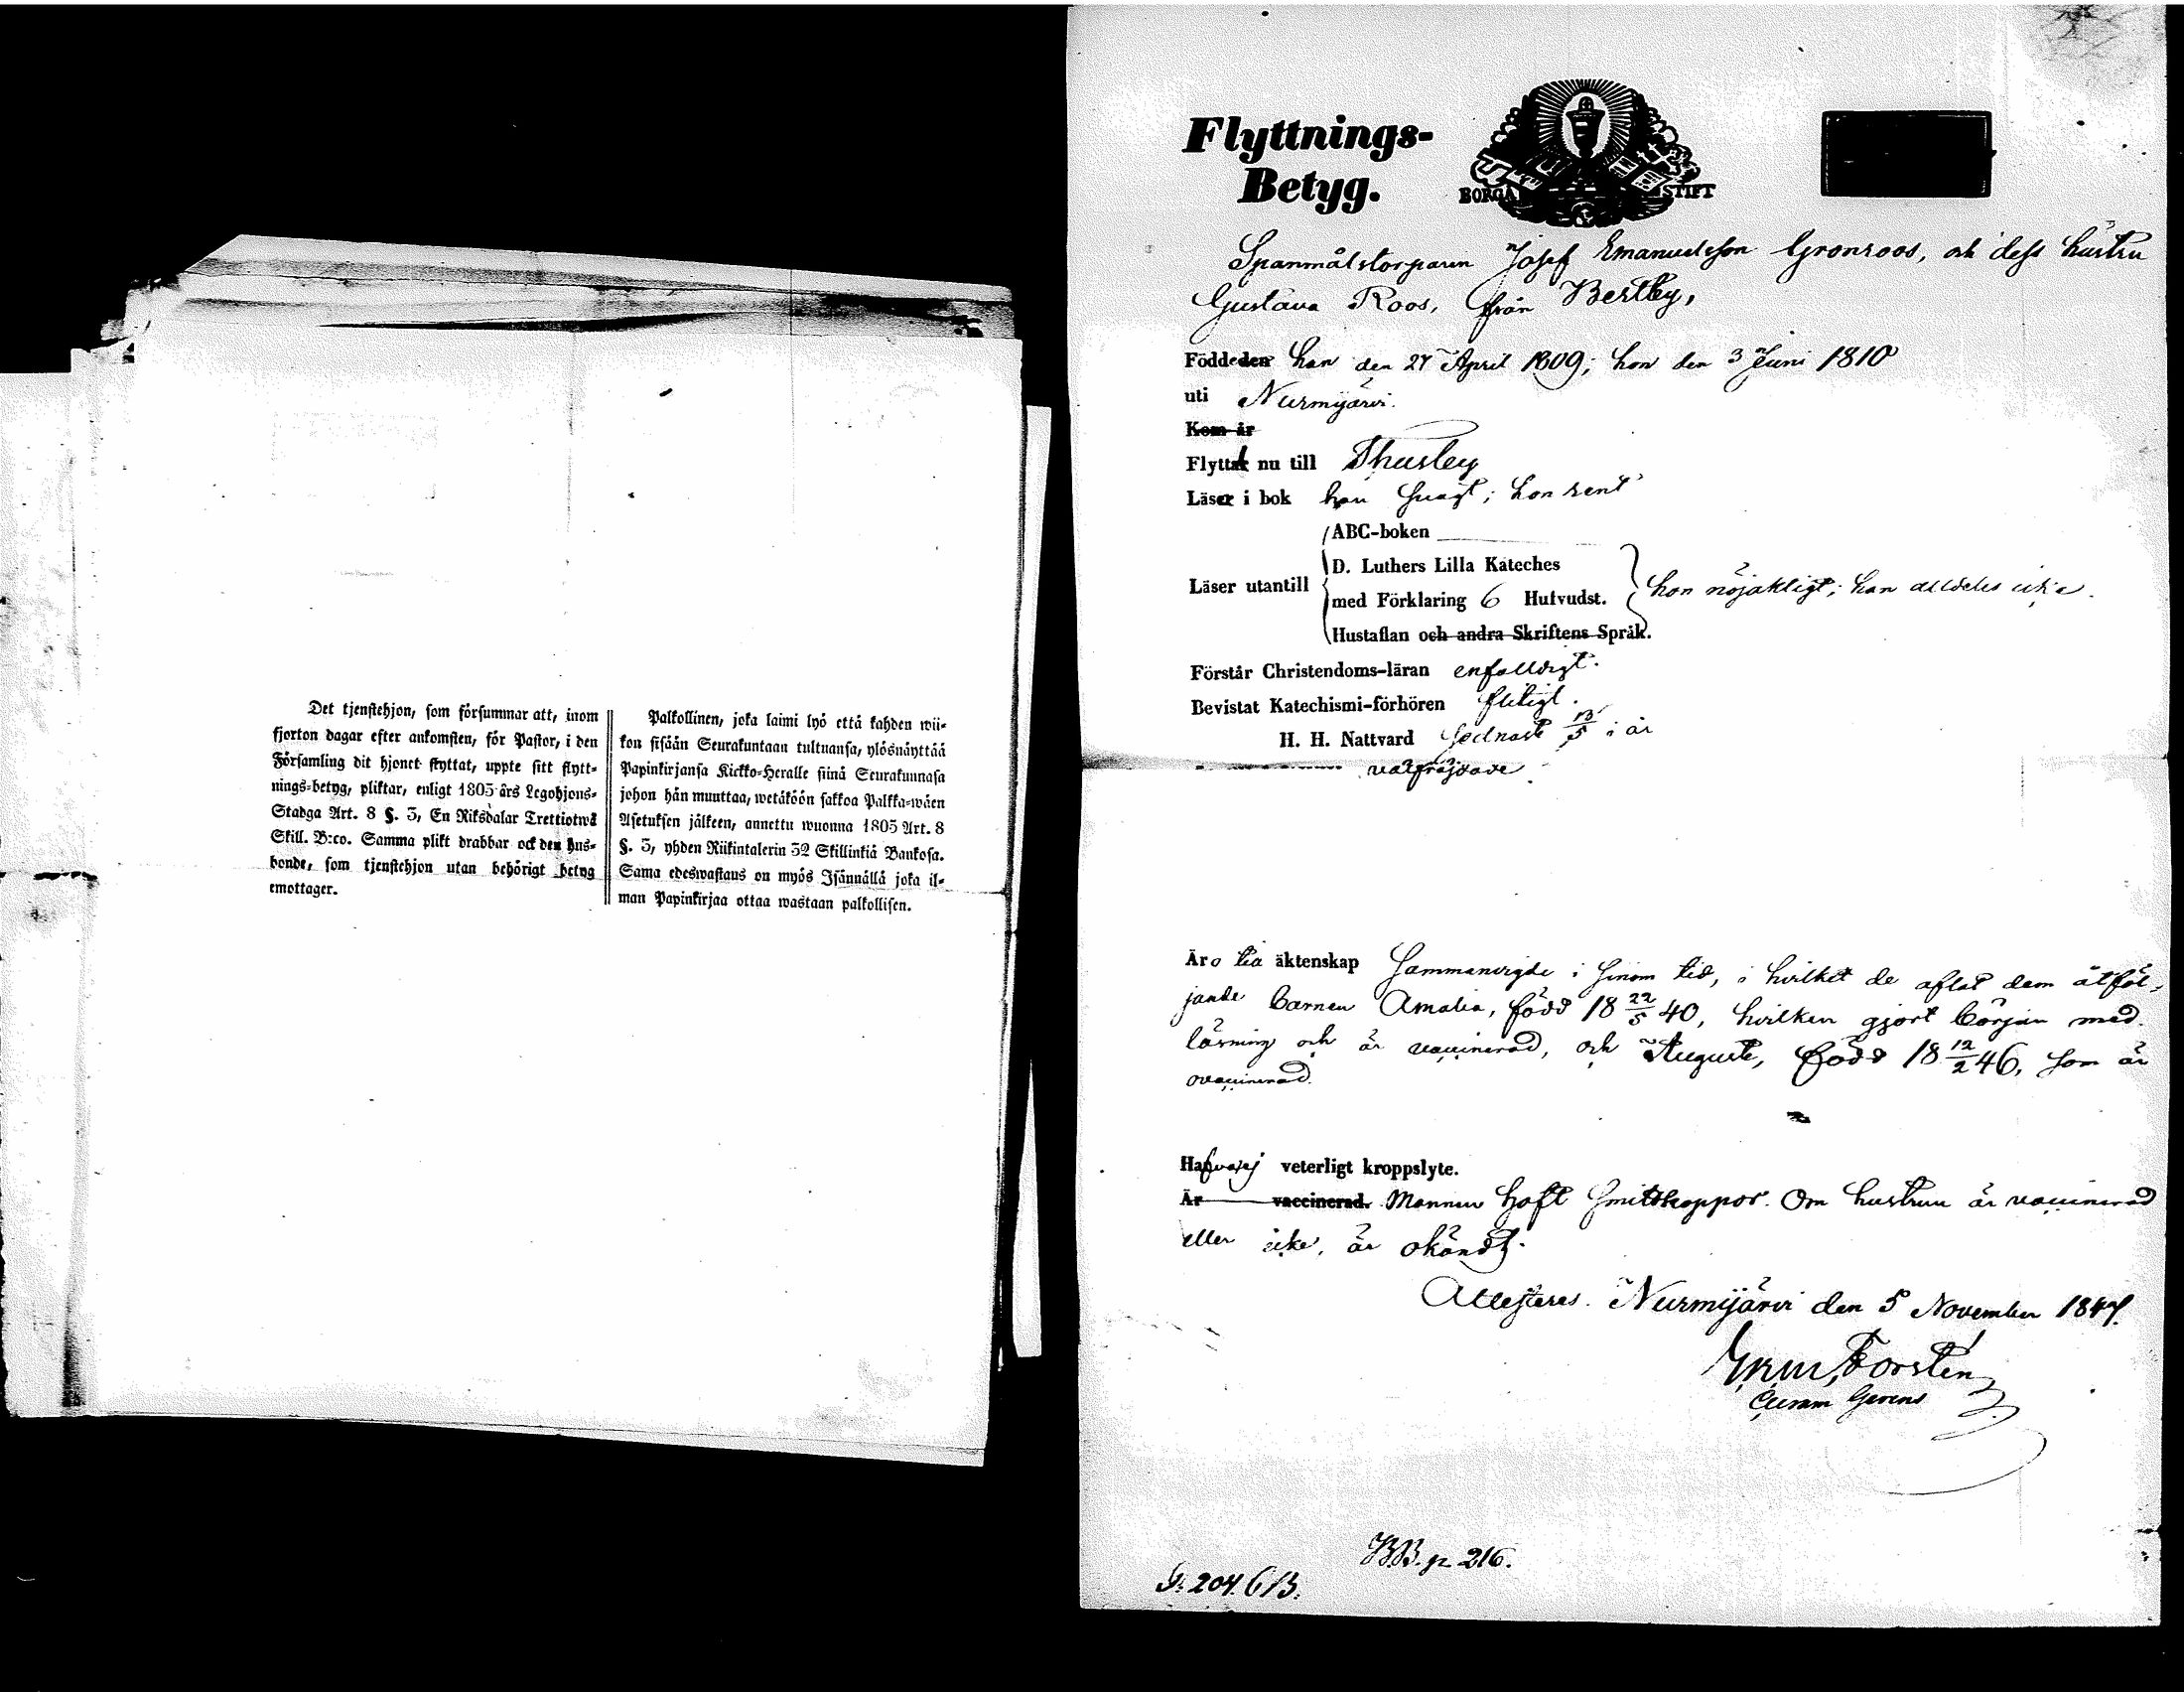 Det tjenstehjon, som försummar att, inom
fjorton dagar efter ankomsten, för Pastor, i den
Församling dit hjonet flyttat, uppte sitt flytt-
nings-betyg, pliktar, enligt 1805 års Legohjons-
Stadga Art. 8 §. 3, En Riksdalar Trettiotwå
Skill. B:co. Samma plikt drabbar ock den hus-
bonde, som tjenstehjon utan behörigt betyg
emottager.
Palkollinen, joka laimi lyö että kahden wii-
kon sisään Seurakuntaan tultuansa, ylösnäyttää
Papinkirjansa Kirkko-Heralle siinä Seurakunnasa
johon hän muuttaa, wetäköön sakkoa Palkka-wäen
Asetuksen jälkeen, annettu wuonna 1805 Art. 8
§. 3, yhden Riikintalerin 32 Skillinkiä Bankosa.
Sama edeswastaus on myös Isännällä joka il-
man Papinkirjaa ottaa wastaan palkollisen.
Flyttnings-
Betyg.
BORGÅ STIFT
Spanmålstorparen Josef Emanuelsson Grönroos, och dess hustru
Gustava Roos, från Bertby,
Födde den han den 27 April 1809; hon den 3 Juni 1810
uti Nurmijärvi.
Kom år
Flytta nu till Thusby
Läser i bok han svagt; hon rent
ABC-boken
D. Luthers Lilla Kateches
Läser utantill med Förklaring 6 Hufvudst. hon nöjaktigt; han alldeles icke.
Hustaflan och andra Skriftens Språk.
Förstår Christendoms-läran enfaldigt.
Bevistat Katechismi-förhören flitigt.
H. H. Nattvard sednast 13/5 i år
välfräjdade
Äro uti äktenskap sammanvigde i sinom tid, i hvilket de aflat dem åtföl-
jande barnen Amalia, född 18 22/5 40, hvilken gjort början med
läsning och är vaccinerad, och August, född 18 12/2 46, som är
ovaccinerad.
Hafva ej veterligt kroppslyte.
Är vaccinerad. Mannen haft smittkoppor. Om hustrun är vaccinerad
eller icke, är okändt.
Attesteras. Nurmijärvi den 5 November 1847.
Forstén
Curam Gerens
BB. p. 216.